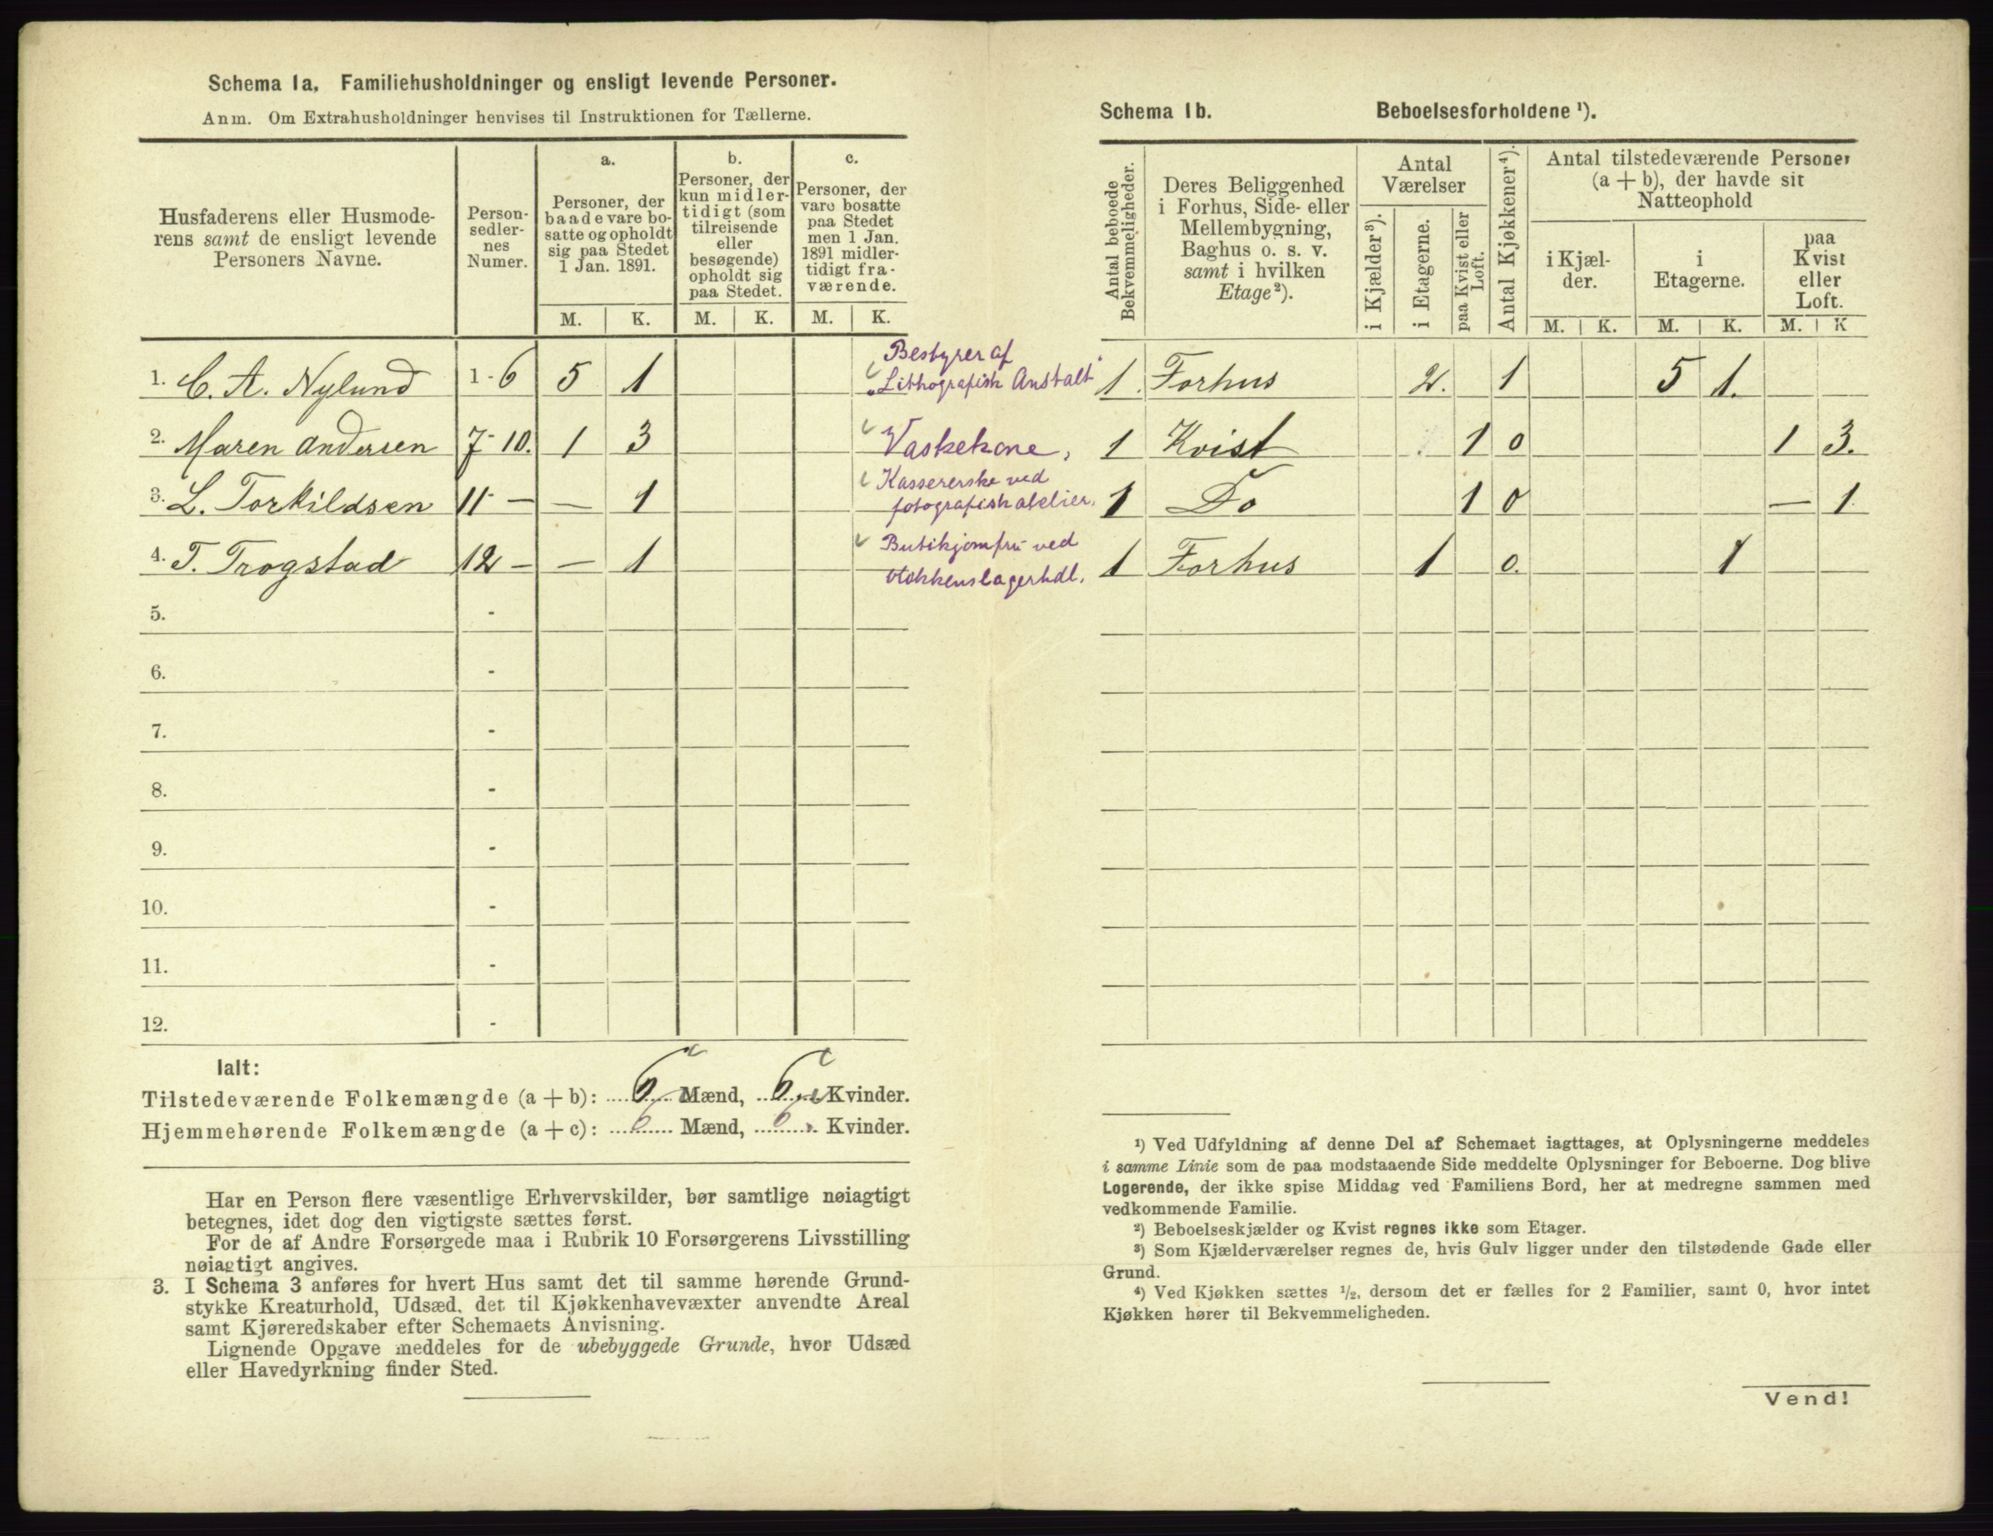 Schema 1a. Familiehusholdninger og ensligt levende Personer.
Anm. Om Extrahusholdninger henvises til Instruktionen for Tællerne.
Husfaderens eller Husmode-
rens samt de ensligt levende
Personers Navne.
Person-
sedler-
nes
Numer.
a.
Personer, der
baade vare bo-
satte og opholdt
sig paa Stedet
1 Jan. 1891.
b.
Personer, der
kun midler-
tidigt (som
tilreisende
eller
besøgende)
opholdt sig
paa Stedet.
c.
Personer, der
vare bosatte
paa Stedet
men 1 Jan.
1891 midler-
tidigt fra-
værende.
M. K. M. K. M. K.
1. C. A. Nylund 1-6 5 1 Bestyrer af
„Lithografisk Anstalt"
2. Maren Andersen 7-10. 1 3 Vaskekone,
3. L. Torkildsen 11 - — 1 Kassererske ved
fotografisk atelier.
4. T. Trogstad 12 - — 1 Butikjomfru ved
5. -
6. -
7. -
8. -
9. -
10. -
11. -
12. -
Ialt:
Tilstedeværende Folkemængde (a + b): 6 Mænd, 6 Kvinder.
Hjemmehørende Folkemængde (a + c): 6 Mænd, 6 Kvinder.
Har en Person flere væsentlige Erhvervskilder, bør samtlige nøiagtigt
betegnes, idet dog den vigtigste sættes først.
For de af Andre Forsørgede maa i Rubrik 10 Forsørgerens Livsstilling
nøiagtigt angives.
3. I Schema 3 anføres for hvert Hus samt det til samme hørende Grund-
stykke Kreaturhold, Udsæd, det til Kjøkkenhavevæxter anvendte Areal
samt Kjøreredskaber efter Schemaets Anvisning.
Lignende Opgave meddeles for de ubebyggede Grunde, hvor Udsæd
eller Havedyrkning finder Sted.
Schema 1b. Beboelsesforholdene ¹).
Antal beboede
Bekvemmeligheder.
Deres Beliggenhed
i Forhus, Side- eller
Mellembygning,
Baghus o. s. v.
samt i hvilken
Etage²).
Antal
Værelser
i Kjælder³).
i Etagerne.
paa Kvist eller
Loft.
Antal Kjøkkener⁴).
Antal tilstedeværende Personer
(a + b), der havde sit
Natteophold
i Kjæl-
der.
i
Etagerne.
paa
Kvist
eller
Loft.
M. K. M. K. M. K
1. Forhus 2. 1 5 1.
1 Kvist 1 0 1 3.
1 Do 1 0 — 1.
1 Forhus 1 0. 1
¹) Ved Udfyldning af denne Del af Schemaet iagttages, at Oplysningerne meddeles
i samme Linie som de paa modstaaende Side meddelte Oplysninger for Beboerne. Dog blive
Logerende, der ikke spise Middag ved Familiens Bord, her at medregne sammen med
vedkommende Familie.
²) Beboelseskjælder og Kvist regnes ikke som Etager.
³) Som Kjælderværelser regnes de, hvis Gulv ligger under den tilstødende Gade eller
Grund.
⁴) Ved Kjøkken sættes ½, dersom det er fælles for 2 Familier, samt 0, hvor intet
Kjøkken hører til Bekvemmeligheden.
Vend!